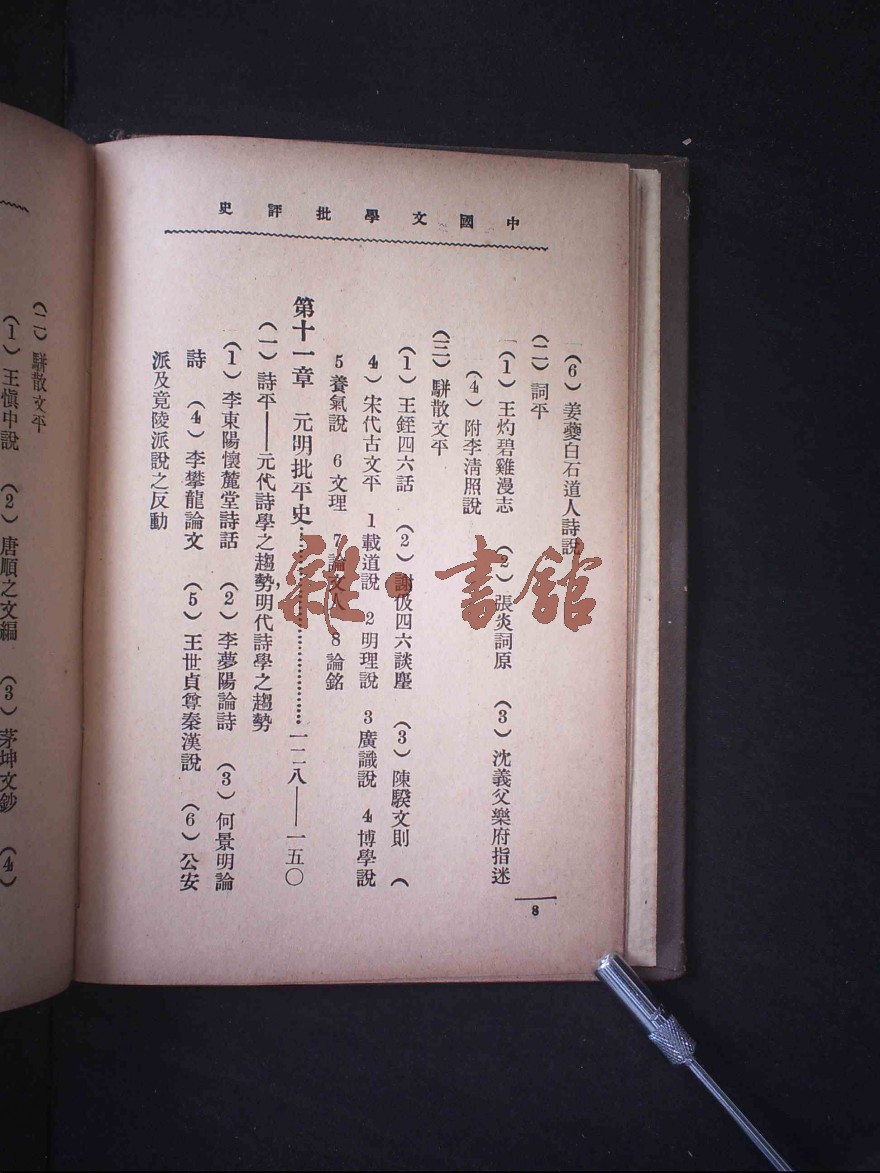 中國文學批評史
(6)姜夔白石道人詩說
(二)詞平
(1)王灼碧雞漫志 (2)張炎詞原 (3)沈義父樂府指迷
(4)附李清照說
(三)駢散文平
(1)王銍四六話 (2)謝伋四六談麈 (3)陳騤文則 (
4)宋代古文平 1載道說 2明理說 3廣識說 4博學說
5養氣說 6文理 7論文人 8論銘
第十一章 元明批平史……………………一二八——一五〇
(一)詩平——元代詩學之趨勢明代詩學之趨勢
(1)李東陽懷麓堂詩話 (2)李夢陽論詩 (3)何景明論
詩 (4)李攀龍論文 (5)王世貞尊秦漢說 (6)公安
派及竟陵派說之反動
8
(二)駢散文平
(1)王慎中說 (2)唐順之文編 (3)茅坤文鈔 (4)
雜·書館